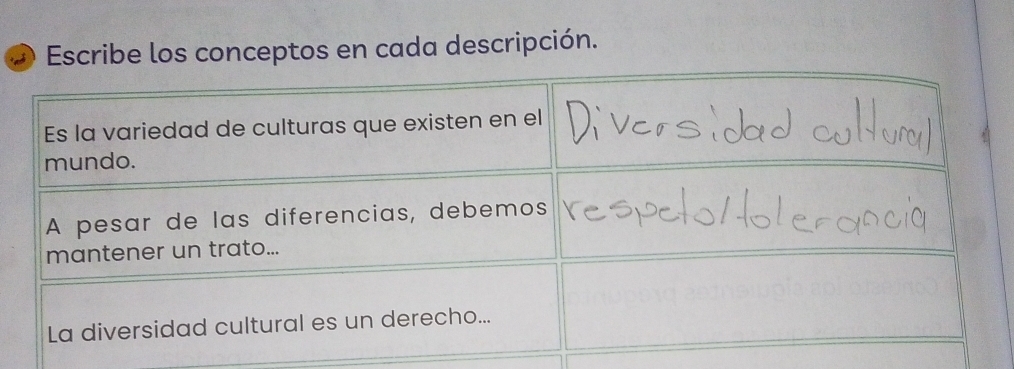 Escribe los conceptos en cada descripción.
Es la variedad de culturas que existen en el
mundo.
Diversidad cultural
A pesar de las diferencias, debemos
mantener un trato...
respeto/tolerancia
La diversidad cultural es un derecho...